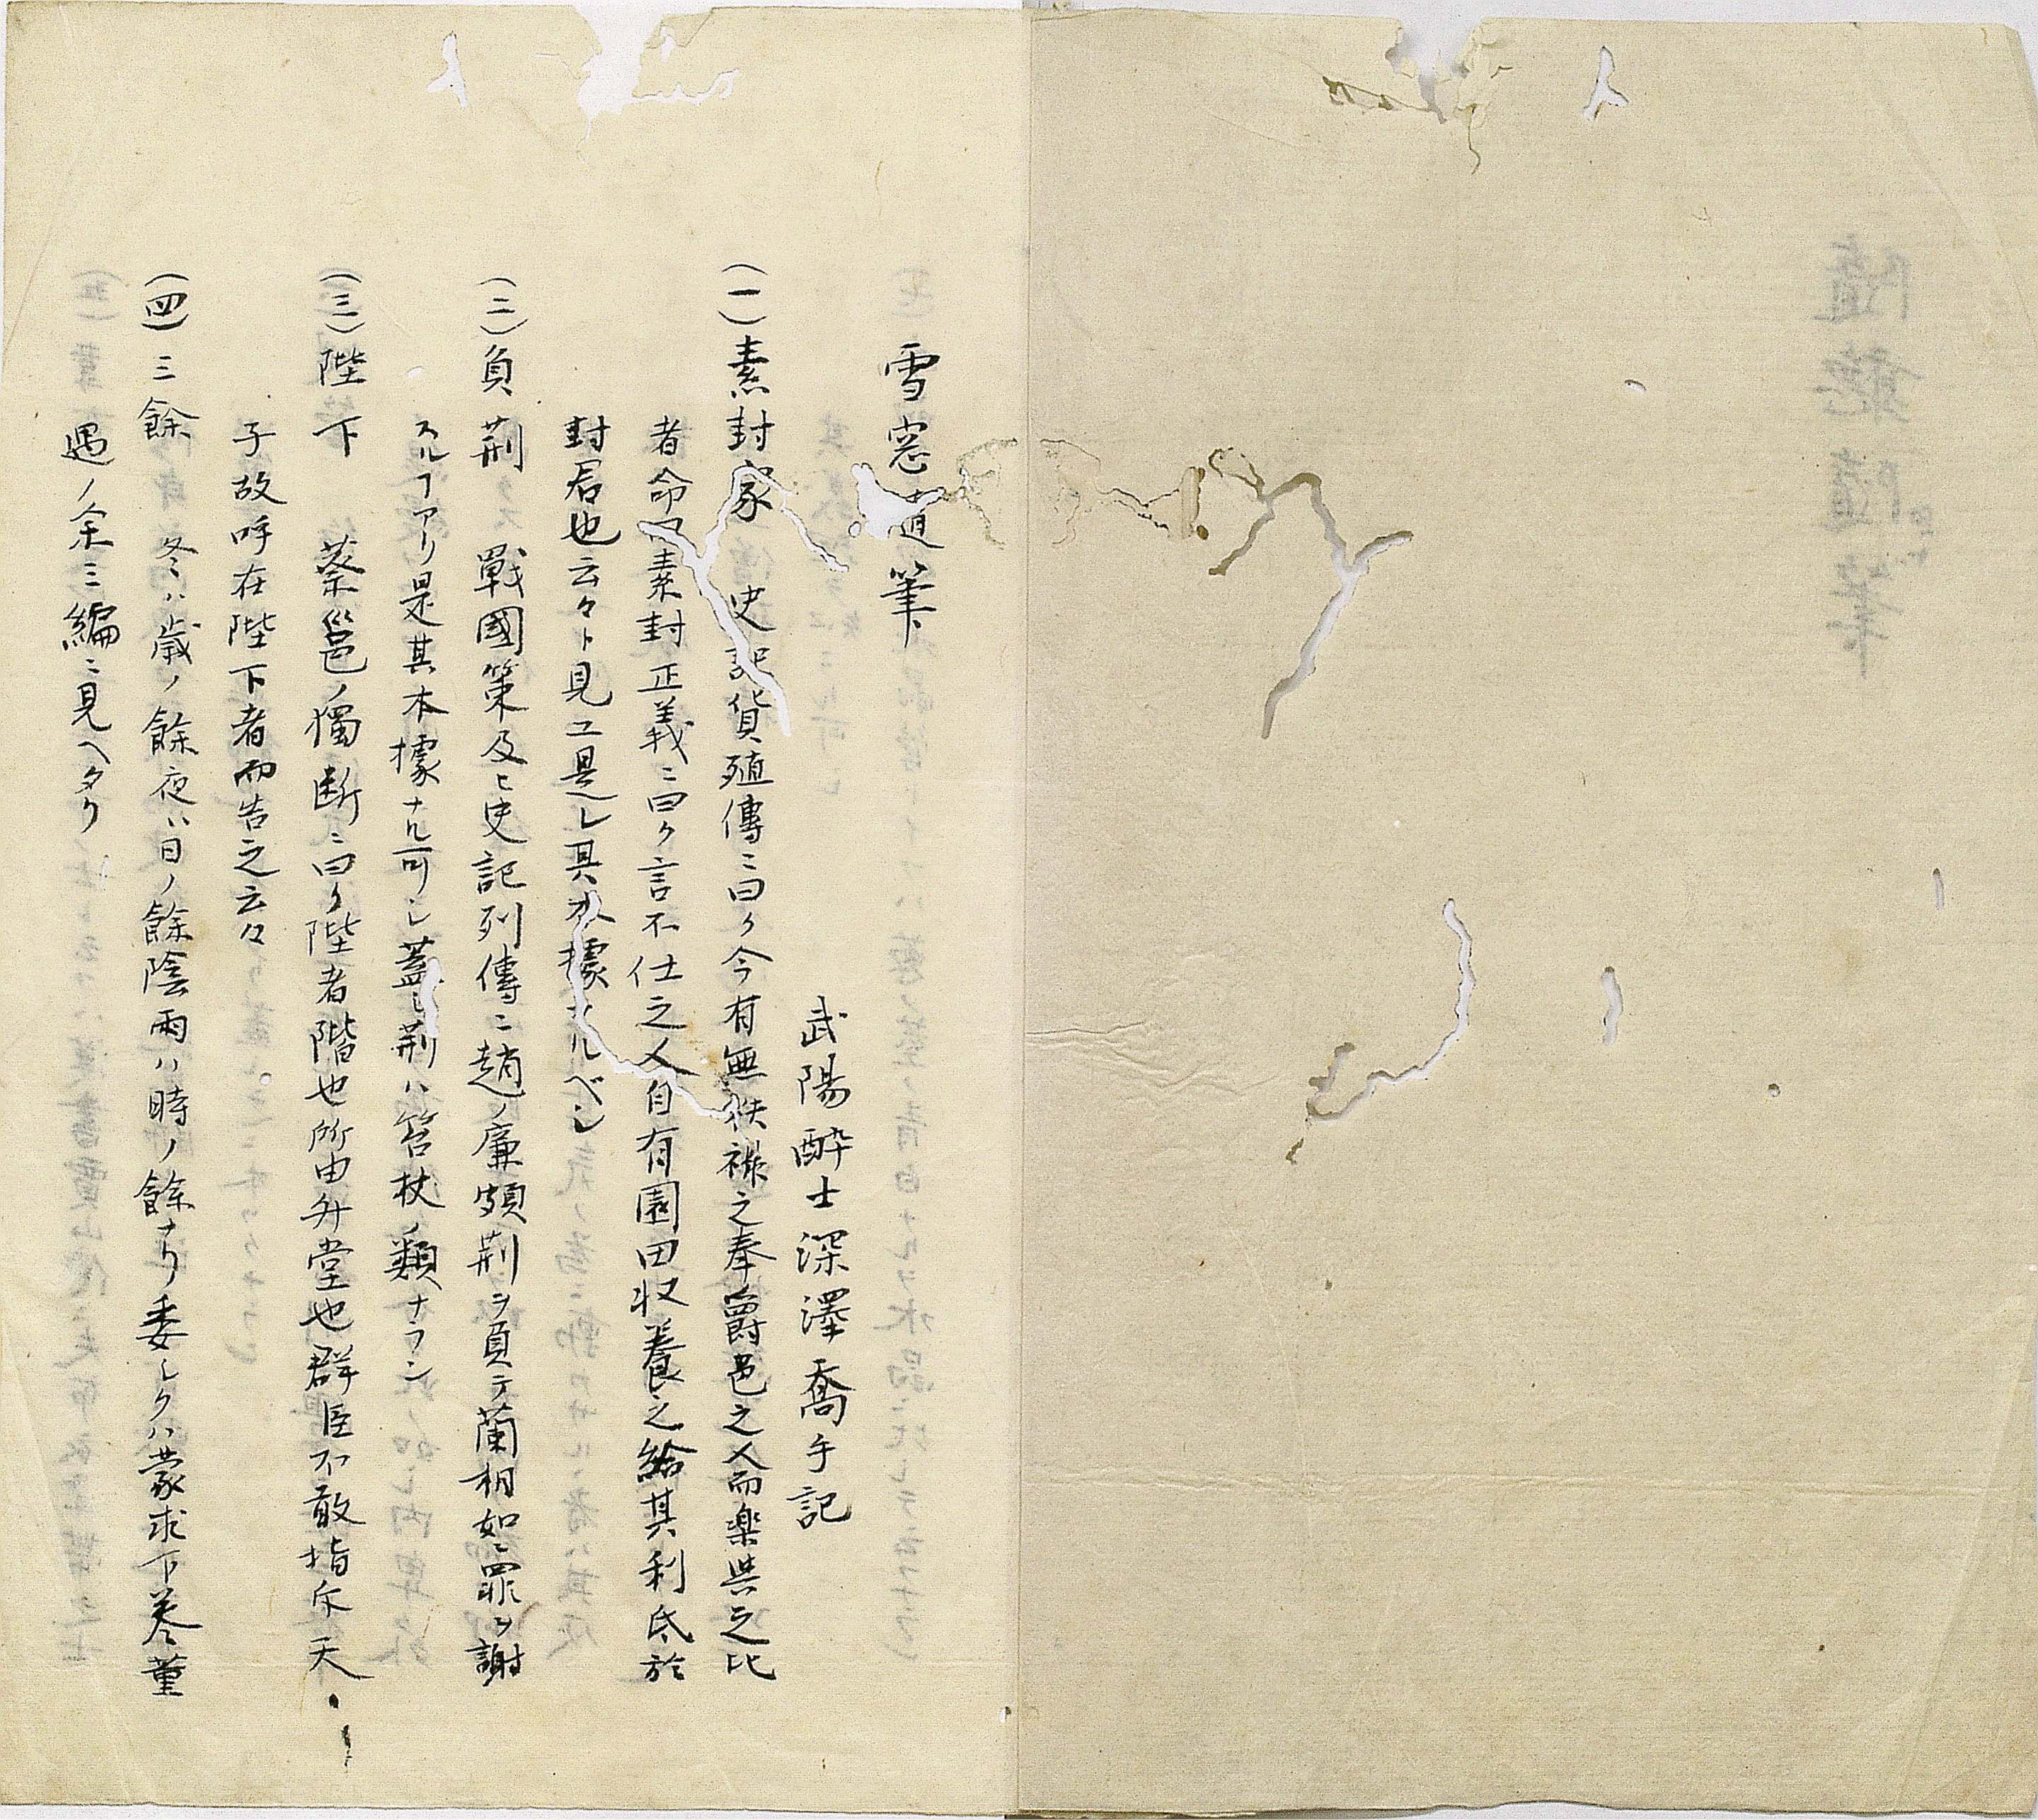 雪窓随筆
武陽酔士深澤喬手記
(一)素封家 史記貨殖傳ニ曰ク今有無秩禄之奉爵邑之人而楽與之比
者命曰素封正義ニ曰ク言不仕之人自有園田収養之給其利氐於
封君也云々ト見エ是レ其本據ナルベシ
(二)負荊 戰國策及ヒ史記列傳ニ趙ノ廉頗荊ヲ負テ藺相如ニ罪ヲ謝
スルヿアリ是其本據ナル可シ蓋シ荊ハ笞杖ノ類ナラン
(三)陛下 蔡邕ノ獨断ニ曰ク陛者階也所由升堂也群臣不敢指斥天
子故呼在陛下者而告之云々
(四)三餘 冬ハ歳ノ餘夜ハ日ノ餘陰雨ハ時ノ餘ナリ委シクハ蒙求下巻董
遇ノ余三編ニ見ヘタリ